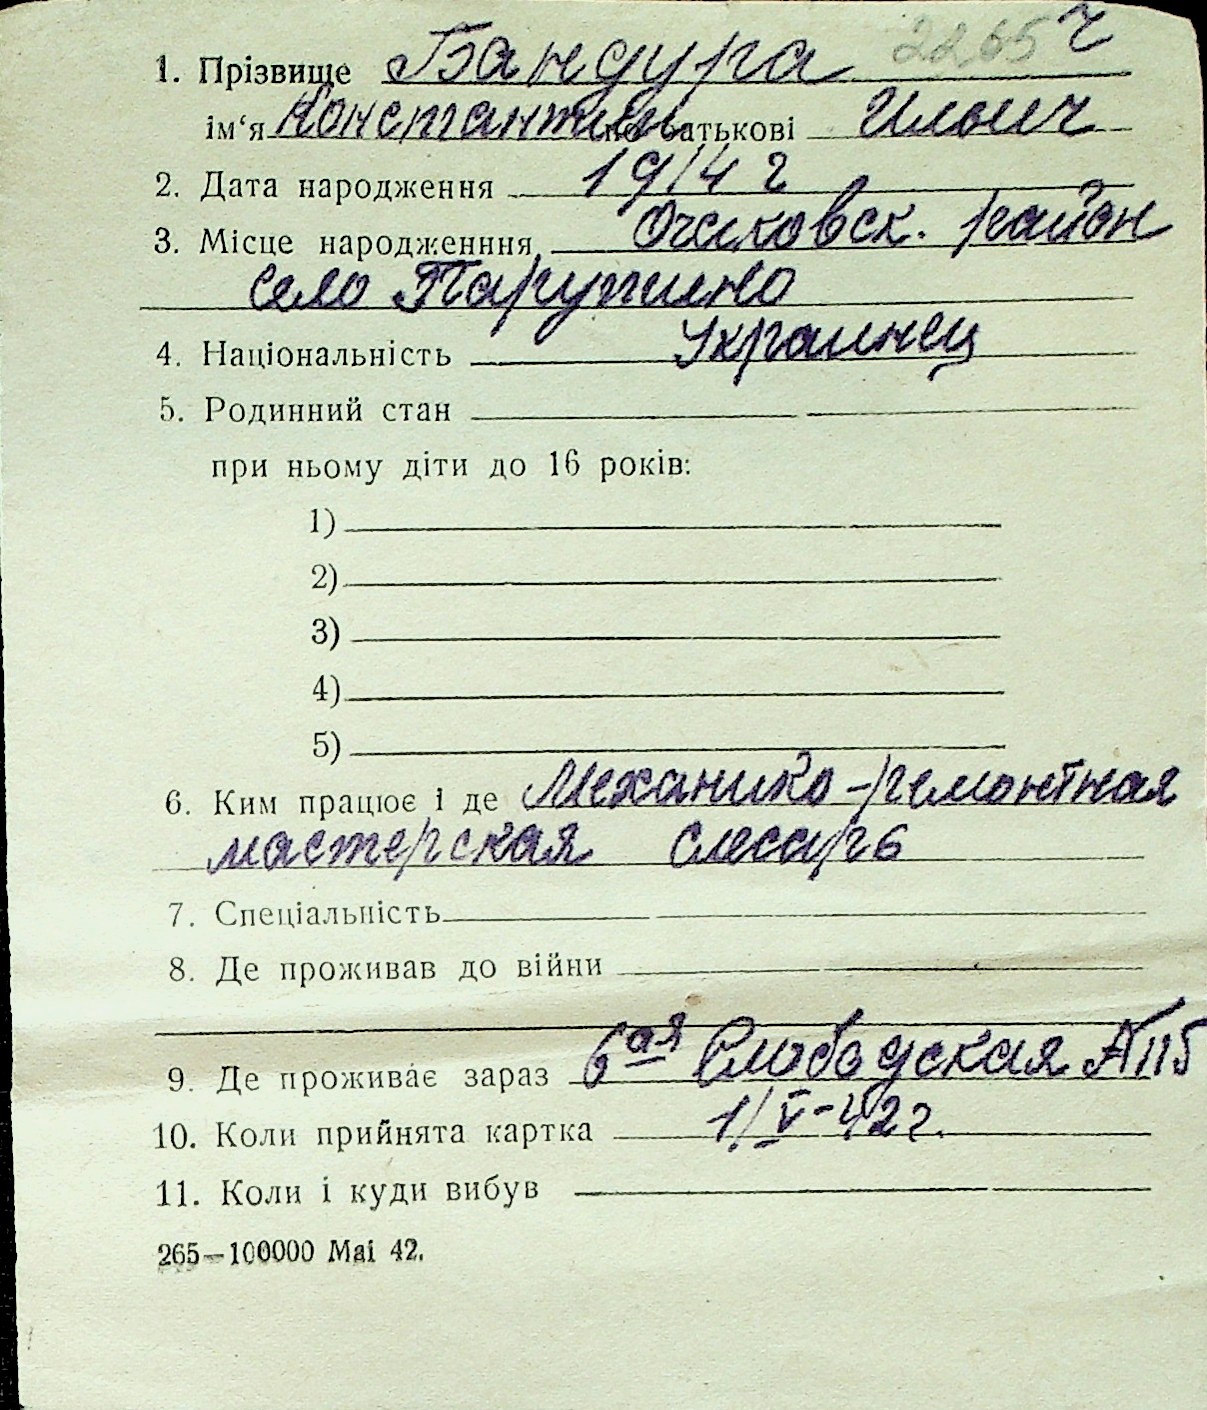 2265 г
1. Прізвище Бандура
ім‘я Константин по батькові Ильич
2. Дата народження 1914 г
3. Місце народженння, Очаковск. район
село Парутино
4. Національність Украинец
5. Родинний стан
при ньому діти до 16 років:
1)
2)
3)
4)
5)
6. Ким працює і де Механико-ремонтная
мастерская слесарь
7. Спеціальність
8. Де проживав до війни
9. Де проживає зараз 6ая Слободская
10. Коли прийнята картка 1/V-42г.
11. Коли і куди вибув
265—100000 Mai 42.